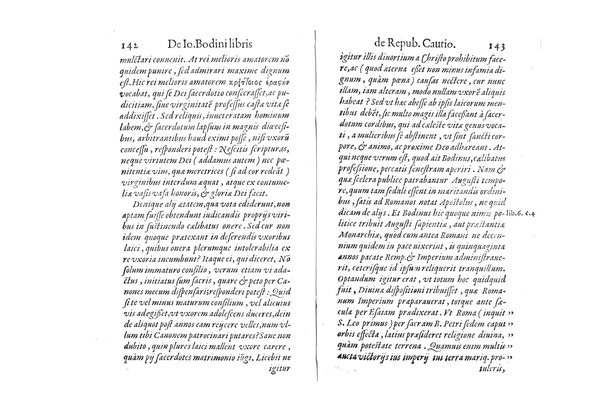 142 De Io. Bodini libris
mulctari convenit. At rei melioris amatorem nõ
quidem punire, sed admirari maxime dignum
est. Hic rei melioris amatorem
vocabat, qui se Dei sacerdotio consecrasset, ac pu-
dicitiam, sive virginitatẽ professus casta vita se
addixisset. Sed reliqui, inveteratam hominum
labem, & sacerdotum lapsum in magnis diœcesi-
bus, arbitrantibus haud eximi posse, nisi vxorẽ
concessis, responderi potest: Nescitis scripturas,
neque virtutem Dei (addamus autem) nec pœ-
nitentiæ vim, qua meretrices (si ad cor redeãt)
virginibus interdum æquat, atque ex contume-
liæ vasis vasa honoris, & gloriæ Dei facit.
Denique alÿ ætatem, qua vota ediderunt, non
aptam fuisse obtendunt iudicandis proprÿs viri-
bus in sustinendo calibatus onere. Sed cur non
idem quoque prætexant in deserendis vxoribus
laici, quibus onera plerumque intolerabilia ex
re vxoria incumbunt? Itaque ei, qui diceret, No
solùm immaturo consilio, verum etiam vi ada-
ctus, initiatus sum sacris, quare de Canonum po-
tiùs mecum dispensari; responderi potest: Quid
si te vel minus maturum consilium, vel alicuius
vis adegisset, vt vxorem adolescens duceres, dein
de aliquot post annos eam reÿcere velles, num vl-
lum tibi Canonem patrocinari putares? Sanè non
dubito, quin plures laici mallent vxore carere,
quàm pÿ sacerdotes matrimonio iũgi. Licebit ne
igitur
de Repub. Cautio. 143
igitur illis divortium a Christo prohibitum face-
re, ac (quod æterna esset non minus infamia di-
gnum, quàm pœna) causas nectere, cur nunc
illam, iam alteram, modo nullam vxorẽ aliquis
habeat? Sed vt hæc abesse ab ipsis laicorum men-
tibus debẽt, sic multo magis illa facessãt à sacer-
dotum cordibus, qui ad cælestẽ vitæ genus voca-
ti, a mulieribus se abstinent, vt sint sancti, & cor-
pore, & animo, ac proxime Deo adhæreant. At-
qui neque verum est, quod ait Bodinus, cælibatus
professione, peccatis fenestram aperiri. Nam &
quæ scelera publice patrabantur Augusti tempo-
re, quum tam seduli essent in maritandis ordini-
bus, satis ad Romanos notat Apostolus, ne quid
dicam de alÿs. Et Bodinus hic quoque nimis po-
litice tribuit Augusti sapientiæ, aut præstantiæ
Monarchiæ, quod cum antea Romani ne decen-
nium quidem in pace vixerint, is quinquaginta
annos pacate Remp. & Imperium administrave-
rit, ceterisque id ipsum reliquerit tranquillum.
Optandum igitur erat, vt totum hoc quidquid
fuit, Divinæ dispositioni tribuisset, quæ Roma-
num Imperium præparauerat, totque ante sæ-
cula per Esaiam prædixerat. Vt Roma (inquit ,,
S. Leo primus) per sacram B. Petri sedem caput ,,
orbis effecta, latiùs præsideret religione divina, ,,
quàm potestate terrena. Quamuis enim multis ,,
aucta victorÿs ius imperÿ tui terra mariq. pro- ,,
tuleris,
lib. 6. c. 4